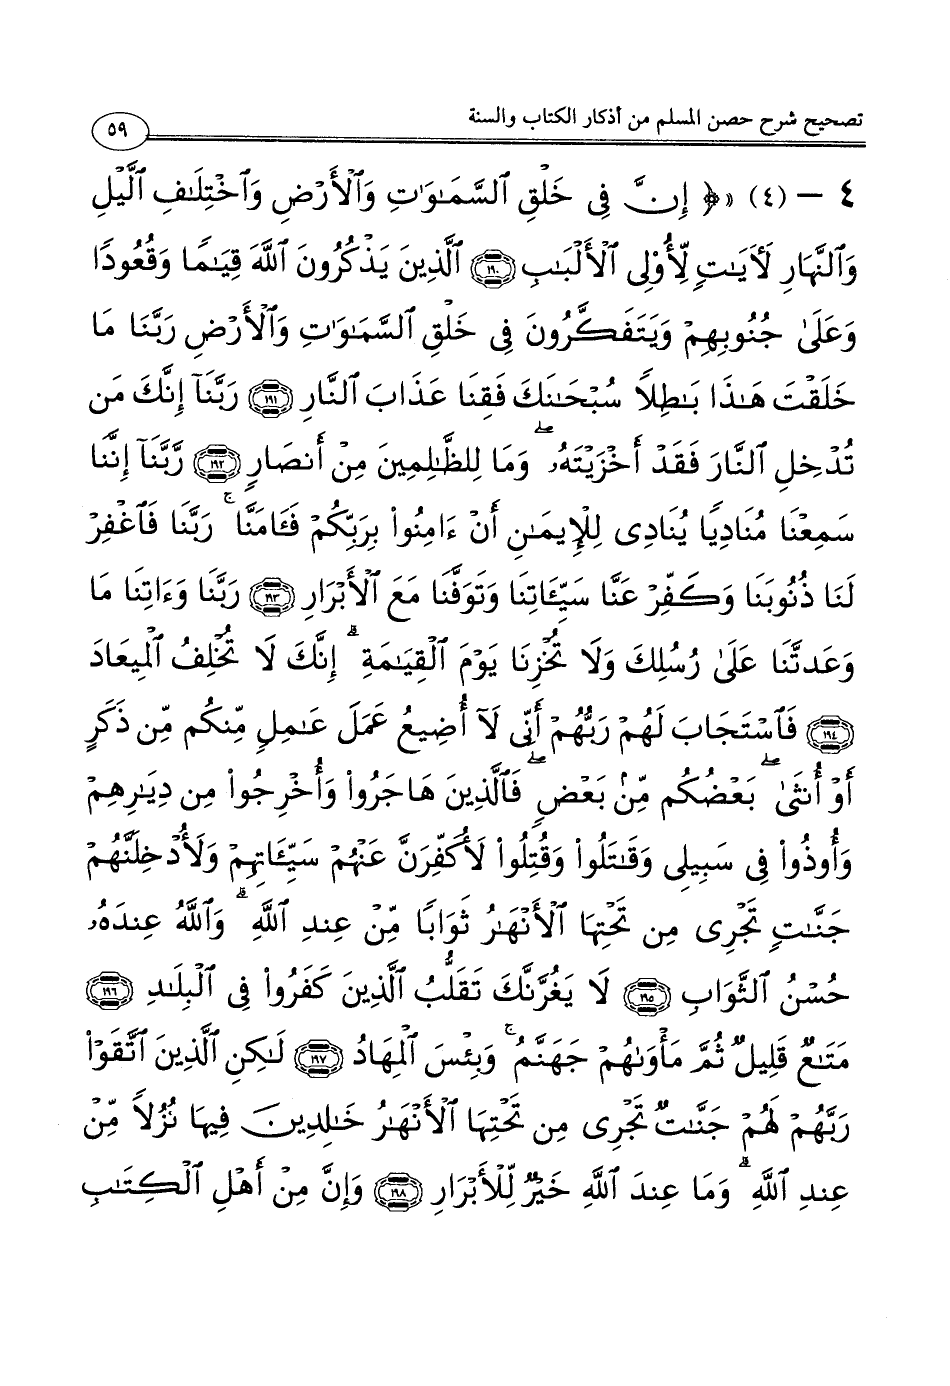 تصحيح شرح حصن المسلم من أذكار الكتاب والسنة
٥٩
٤ - (٤) «﴿ إِنَّ فِى خَلْقِ ٱلسَّمَـٰوَٰتِ وَٱلْأَرْضِ وَٱخْتِلَـٰفِ ٱلَّيْلِ
وَٱلنَّهَارِ لَأَيَـٰتٍ لِّأُوْلِى ٱلْأَلْبَـٰبِ ﴿١٩٠﴾ ٱلَّذِينَ يَذْكُرُونَ ٱللَّهَ قِيَـٰمًا وَقُعُودًا
وَعَلَىٰ جُنُوبِهِمْ وَيَتَفَكَّرُونَ فِى خَلْقِ ٱلسَّمَـٰوَٰتِ وَٱلْأَرْضِ رَبَّنَا مَا
خَلَقْتَ هَـٰذَا بَـٰطِلًا سُبْحَـٰنَكَ فَقِنَا عَذَابَ ٱلنَّارِ ﴿١٩١﴾ رَبَّنَآ إِنَّكَ مَن
تُدْخِلِ ٱلنَّارَ فَقَدْ أَخْزَيْتَهُۥ ۖ وَمَا لِلظَّـٰلِمِينَ مِنْ أَنصَارٍ ﴿١٩٢﴾ رَّبَّنَآ إِنَّنَا
سَمِعْنَا مُنَادِيًا يُنَادِى لِلْإِيمَـٰنِ أَنْ ءَامِنُوا۟ بِرَبِّكُمْ فَـَٔامَنَّا ۚ رَبَّنَا فَٱغْفِرْ
لَنَا ذُنُوبَنَا وَكَفِّرْ عَنَّا سَيِّـَٔاتِنَا وَتَوَفَّنَا مَعَ ٱلْأَبْرَارِ ﴿١٩٣﴾ رَبَّنَا وَءَاتِنَا مَا
وَعَدتَّنَا عَلَىٰ رُسُلِكَ وَلَا تُخْزِنَا يَوْمَ ٱلْقِيَـٰمَةِ ۗ إِنَّكَ لَا تُخْلِفُ ٱلْمِيعَادَ
﴿١٩٤﴾ فَٱسْتَجَابَ لَهُمْ رَبُّهُمْ أَنِّى لَآ أُضِيعُ عَمَلَ عَـٰمِلٍ مِّنكُم مِّن ذَكَرٍ
أَوْ أُنثَىٰ ۖ بَعْضُكُم مِّنۢ بَعْضٍ ۖ فَٱلَّذِينَ هَاجَرُوا۟ وَأُخْرِجُوا۟ مِن دِيَـٰرِهِمْ
وَأُوذُوا۟ فِى سَبِيلِى وَقَـٰتَلُوا۟ وَقُتِلُوا۟ لَأُكَفِّرَنَّ عَنْهُمْ سَيِّـَٔاتِهِمْ وَلَأُدْخِلَنَّهُمْ
جَنَّـٰتٍ تَجْرِى مِن تَحْتِهَا ٱلْأَنْهَـٰرُ ثَوَابًا مِّنْ عِندِ ٱللَّهِ ۗ وَٱللَّهُ عِندَهُۥ
حُسْنُ ٱلثَّوَابِ ﴿١٩٥﴾ لَا يَغُرَّنَّكَ تَقَلُّبُ ٱلَّذِينَ كَفَرُوا۟ فِى ٱلْبِلَـٰدِ ﴿١٩٦﴾
مَتَـٰعٌ قَلِيلٌ ثُمَّ مَأْوَىٰهُمْ جَهَنَّمُ ۚ وَبِئْسَ ٱلْمِهَادُ ﴿١٩٧﴾ لَـٰكِنِ ٱلَّذِينَ ٱتَّقَوْا۟
رَبَّهُمْ لَهُمْ جَنَّـٰتٌ تَجْرِى مِن تَحْتِهَا ٱلْأَنْهَـٰرُ خَـٰلِدِينَ فِيهَا نُزُلًا مِّنْ
عِندِ ٱللَّهِ ۗ وَمَا عِندَ ٱللَّهِ خَيْرٌ لِّلْأَبْرَارِ ﴿١٩٨﴾ وَإِنَّ مِنْ أَهْلِ ٱلْكِتَـٰبِ